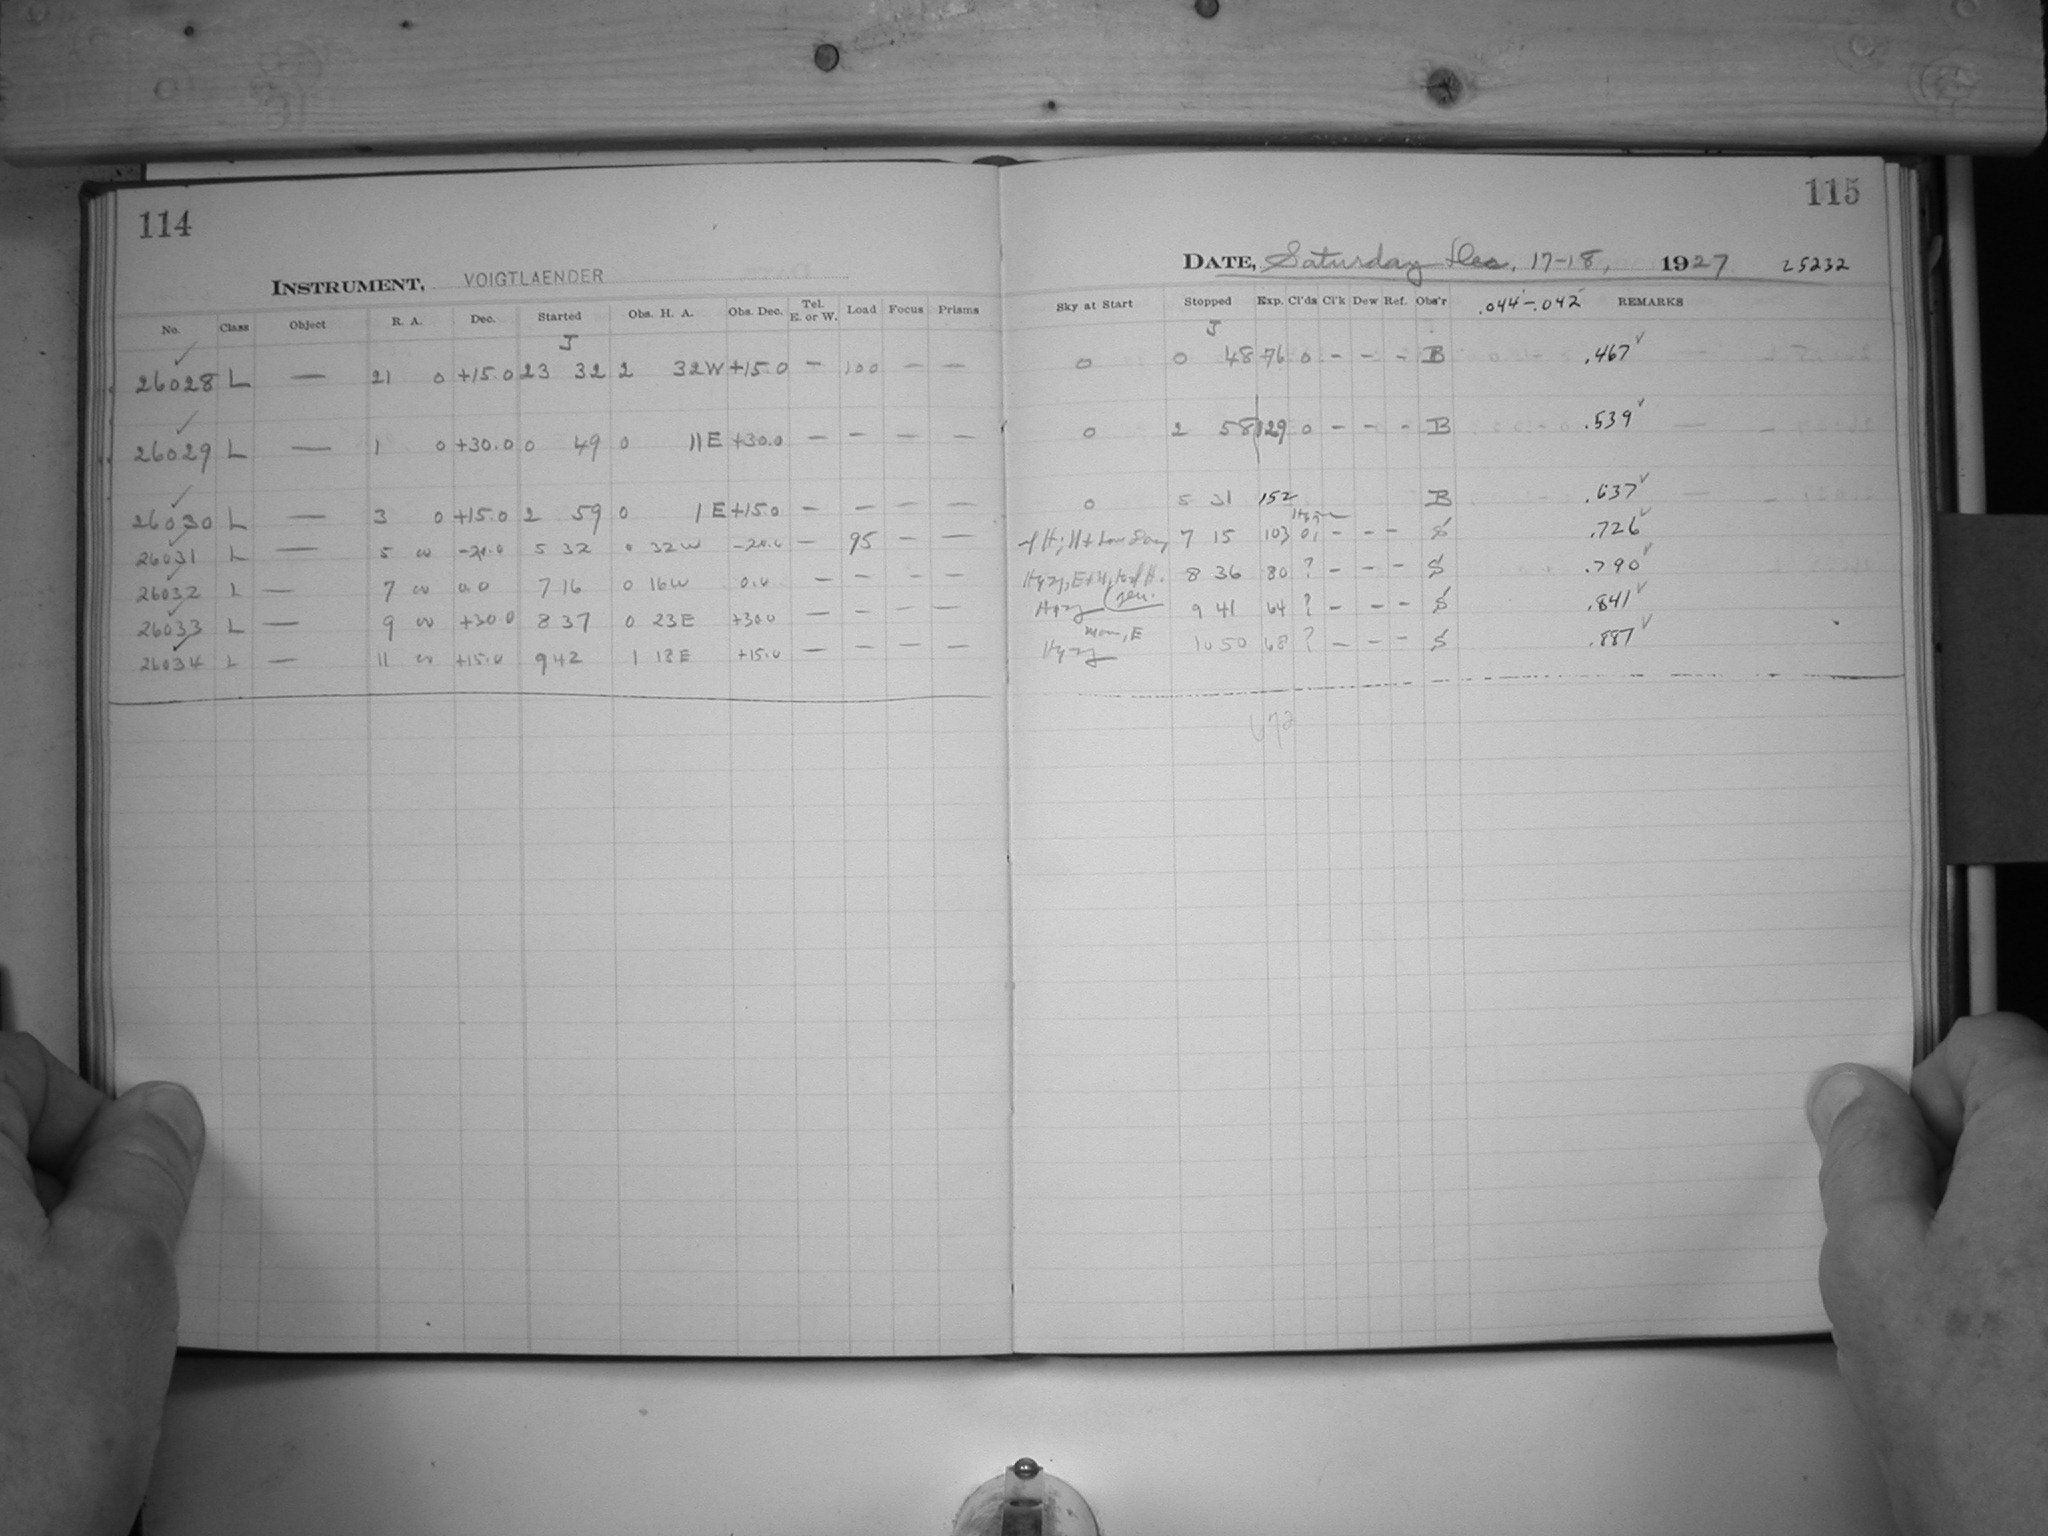 114
INSTRUMENT, VOIGTLAENDER
No. Class Object R. A. Dec. Started Obs. H. A. Obs. Dec. Tel. E. or W. Load Focus Prisms
J
26028 L — 21 0 +15.0 23 32 2 32W +15.0 — 100 — —
26029 L — 1 0 +30.0 0 49 0 11E +30.0 — — — —
26030 L — 3 0 +15.0 2 59 0 1E +15.0 — — — —
26031 L — 5 00 -20.0 5 32 0 32W -20.0 — 95 — —
26032 L — 7 00 0.0 7 16 0 16W 0.0 — — — —
26033 L — 9 00 +30.0 8 37 0 23E +30.0 — — — —
26034 L — 11 00 +15.0 9 42 1 18E +15.0 — — — —
115
DATE, Saturday Dec. 17-18, 1927 25232
Sky at Start Stopped Exp. Cl'ds Cl'k Dew Ref. Obs'r .044-.042 REMARKS
J
0 0 48 76 0 - - - B .467
0 2 58 129 0 - - - B .539
0 5 31 152 B .637
7 15 103 0, - - - S .726
Hazy, E+ 8 36 80 ? - - - S .790
Hazy 9 41 64 ? - - - S .841
Hazy Moon, E 10 50 68 ? - - - S .887
672